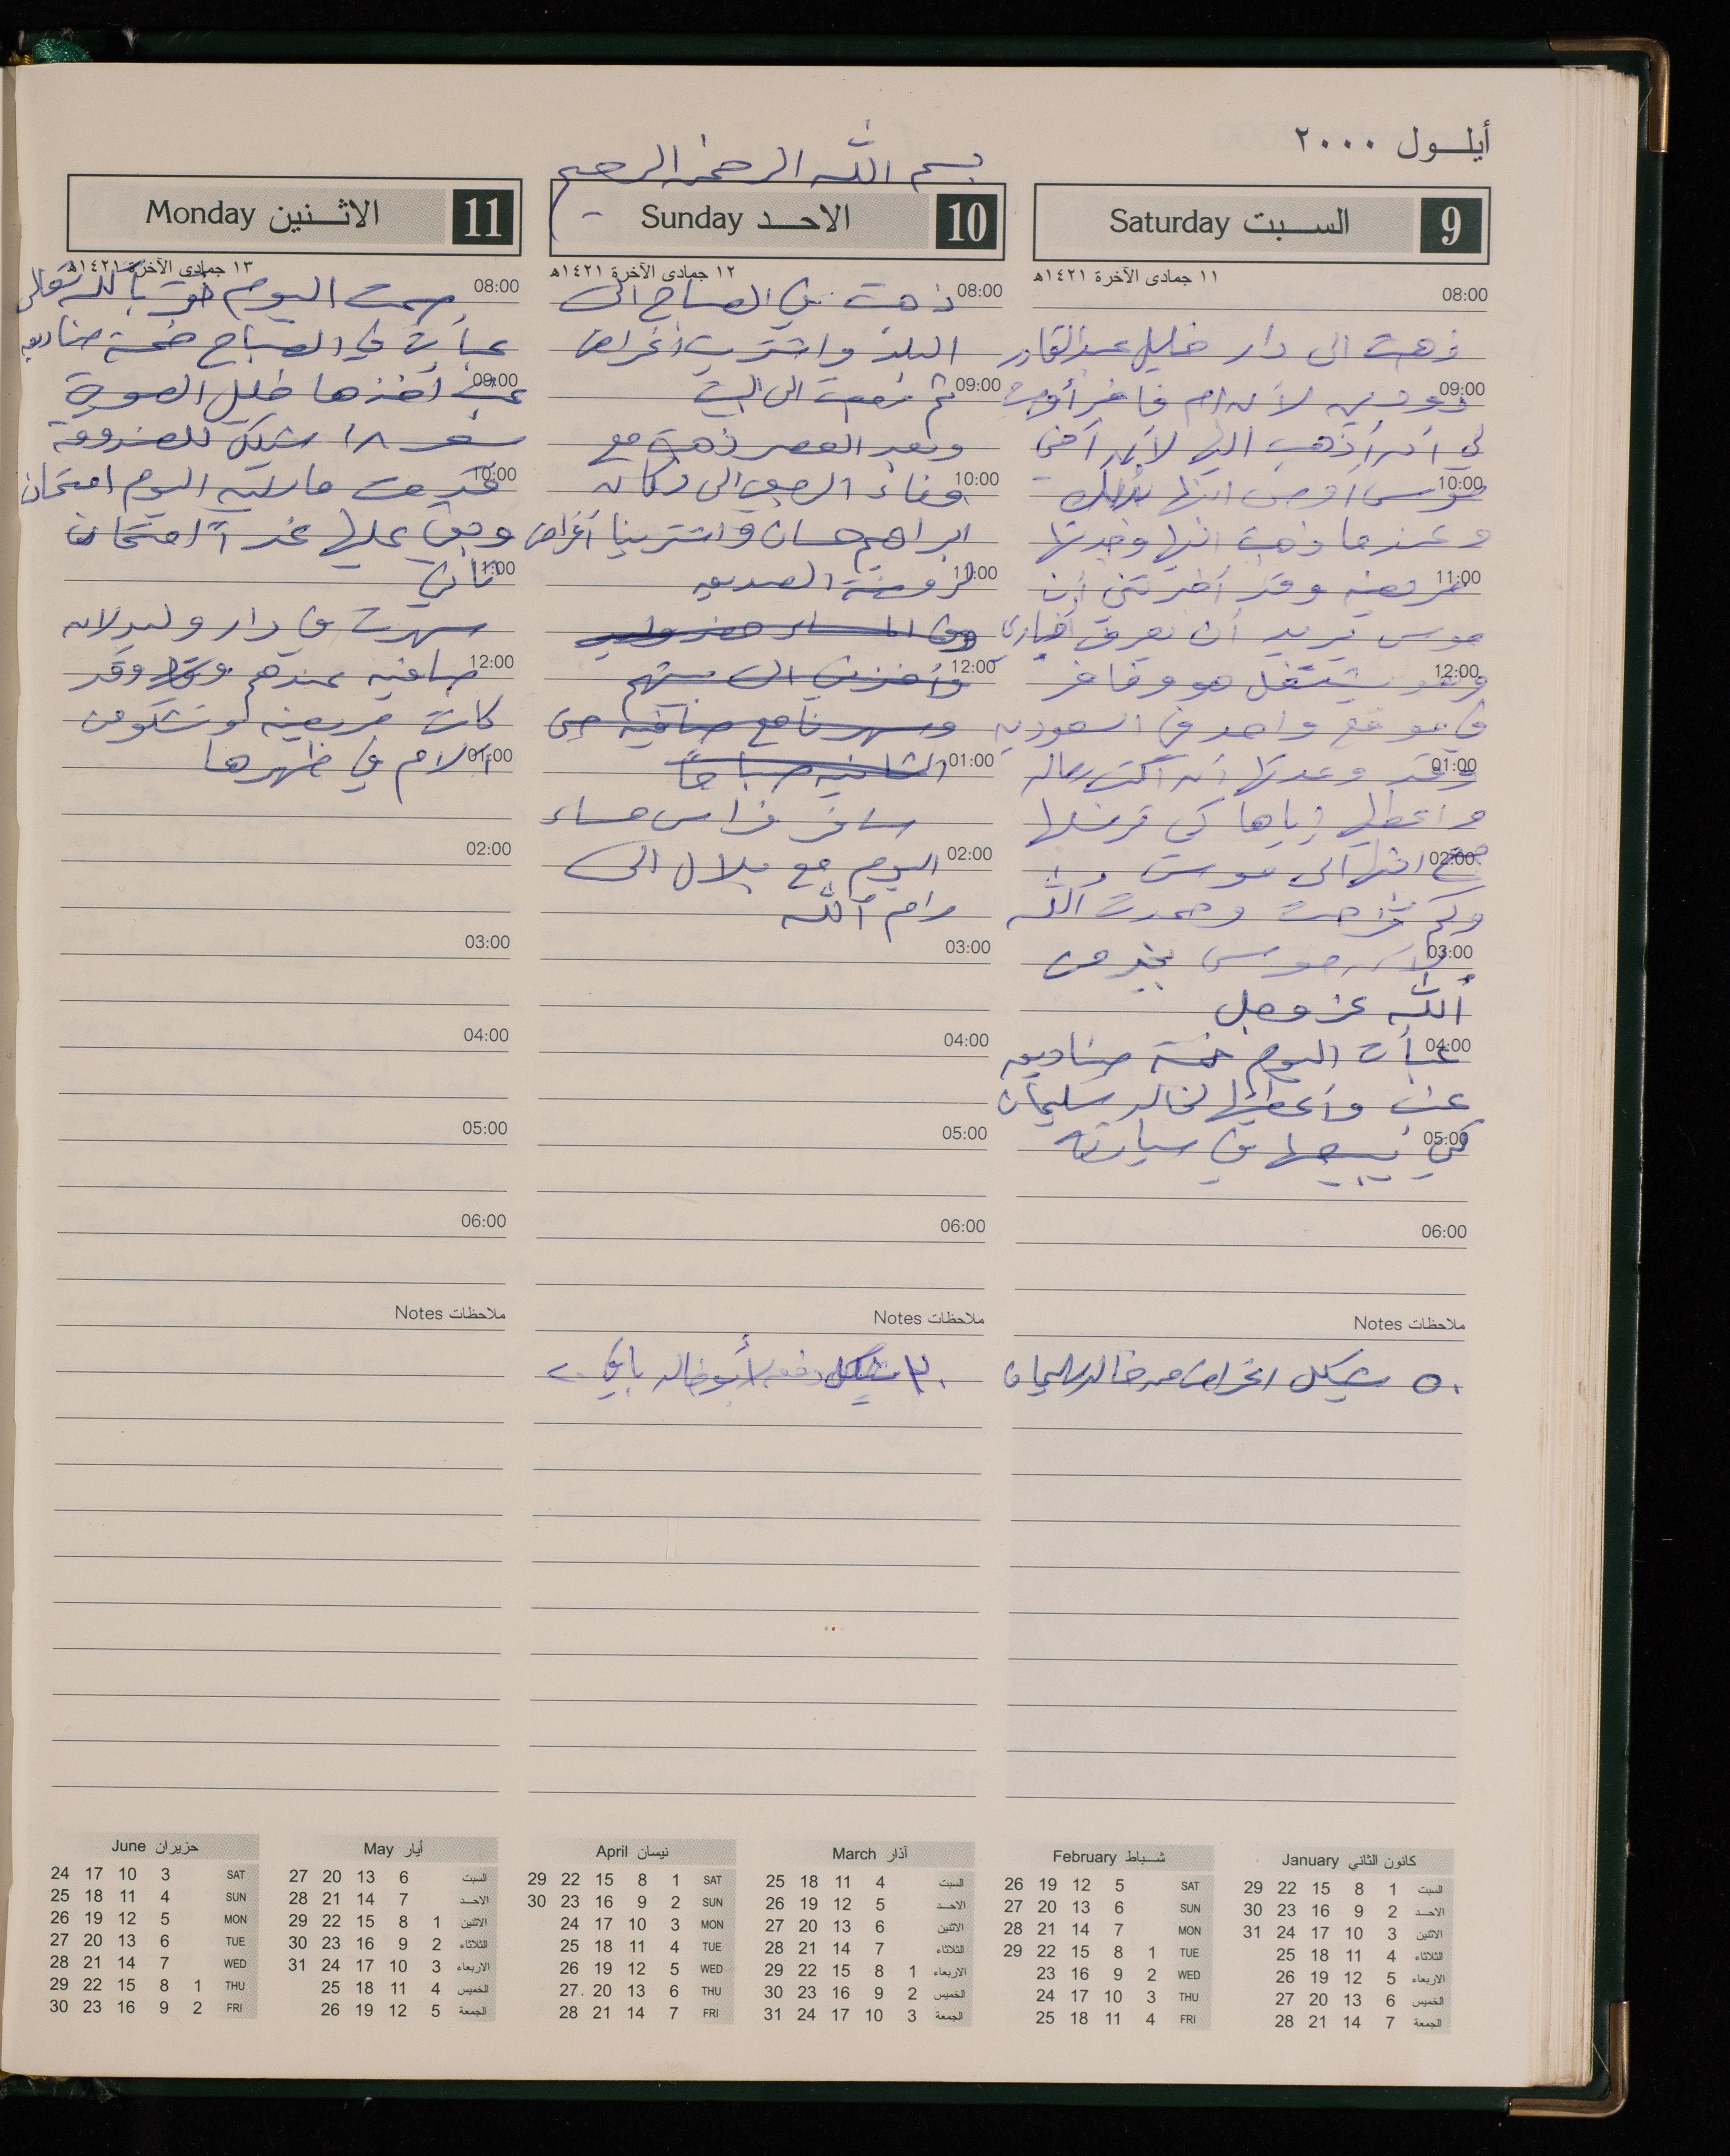 أيلول ٢٠٠٠
بسم الله الرحمن الرحيم
9 السبت Saturday
١١ جمادى الآخرة ١٤٢١هـ
08:00
ذهبت الى دار خليل عبدالقادر
09:00
لي أن أذهب اليها لأن أخي
10:00
موسى اوصى ابنها بذلك
وعندما ذهبت اليها وجدتها
11:00
مريضه وقد أخبرتني أن
موسى يريد أن يعرف أخباري
12:00
وهو يشتغل هو و
في موقع واحد في السعوديه
01:00
وقد وعدتها أن أكتب رساله
واعطيها إياها كي ترسلها
02:00
مع ابنها الى موسى
وكم فرحت وحمدت الله
03:00
لأن موسى بخير من
الله عز وجل
04:00
عبأت اليوم خمسة صناديق
عنب وأعطيتها لخالد سليمان
05:00
كي يبيعها في سيارته
06:00
ملاحظات Notes
٥٠ شيكل اغراض من خالد سليمان
10 الاحد Sunday
١٢ جمادى الآخرة ١٤٢١هـ
08:00
ذهبت في الصباح الى
البلد واشتريت أغراض
09:00
ثم رجعت الى البيت
وبعد العصر ذهبت مع
10:00
وفاء الى دكان
ابراهيم حسان واشترينا أغراض
11:00
لروضة الصديق
وفي المساء حضر وليد
12:00
وأخذني الى بيتهم
وسهرنا مع صافيه حتى
01:00
الثانيه صباحاً
سافر فراس مساء
02:00
اليوم مع بلال الى
رام الله
03:00
04:00
05:00
06:00
ملاحظات Notes
شيكل دفعه لأبو خالد باقي ٢٠
11 الاثنين Monday
١٣ جمادى الآخرة ١٤٢١هـ
08:00
صمت اليوم بالله تعالى
عبأت في الصباح خمسة صناديق
09:00
عنب أخذها خليل
بسعر ١٨ شيكل للصندوق
10:00
قدمت اليوم امتحان
وبقي عليها غداً امتحان
11:00
ثاني
سهرت في دار وليد لأن
12:00
صافيه عندهم وقد
كانت مريضه وتشكو من
01:00
آلام في ظهرها
02:00
03:00
04:00
05:00
06:00
ملاحظات Notes
كانون الثاني January
السبت 1 8 15 22 29
الاحد 2 9 16 23 30
الاثنين 3 10 17 24 31
الثلاثاء 4 11 18 25
الاربعاء 5 12 19 26
الخميس 6 13 20 27
الجمعة 7 14 21 28
شباط February
SAT 5 12 19 26
SUN 6 13 20 27
MON 7 14 21 28
TUE 1 8 15 22 29
WED 2 9 16 23
THU 3 10 17 24
FRI 4 11 18 25
آذار March
السبت 4 11 18 25
الاحد 5 12 19 26
الاثنين 6 13 20 27
الثلاثاء 7 14 21 28
الاربعاء 1 8 15 22 29
الخميس 2 9 16 23 30
الجمعة 3 10 17 24 31
نيسان April
SAT 1 8 15 22 29
SUN 2 9 16 23 30
MON 3 10 17 24
TUE 4 11 18 25
WED 5 12 19 26
THU 6 13 20 27
FRI 7 14 21 28
أيار May
السبت 6 13 20 27
الاحد 7 14 21 28
الاثنين 1 8 15 22 29
الثلاثاء 2 9 16 23 30
الاربعاء 3 10 17 24 31
الخميس 4 11 18 25
الجمعة 5 12 19 26
حزيران June
SAT 3 10 17 24
SUN 4 11 18 25
MON 5 12 19 26
TUE 6 13 20 27
WED 7 14 21 28
THU 1 8 15 22 29
FRI 2 9 16 23 30